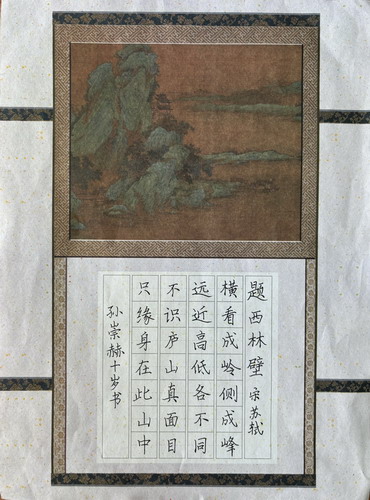 题西林壁 宋苏轼
横看成岭侧成峰
远近高低各不同
不识庐山真面目
只缘身在此山中
孙崇赫十岁书